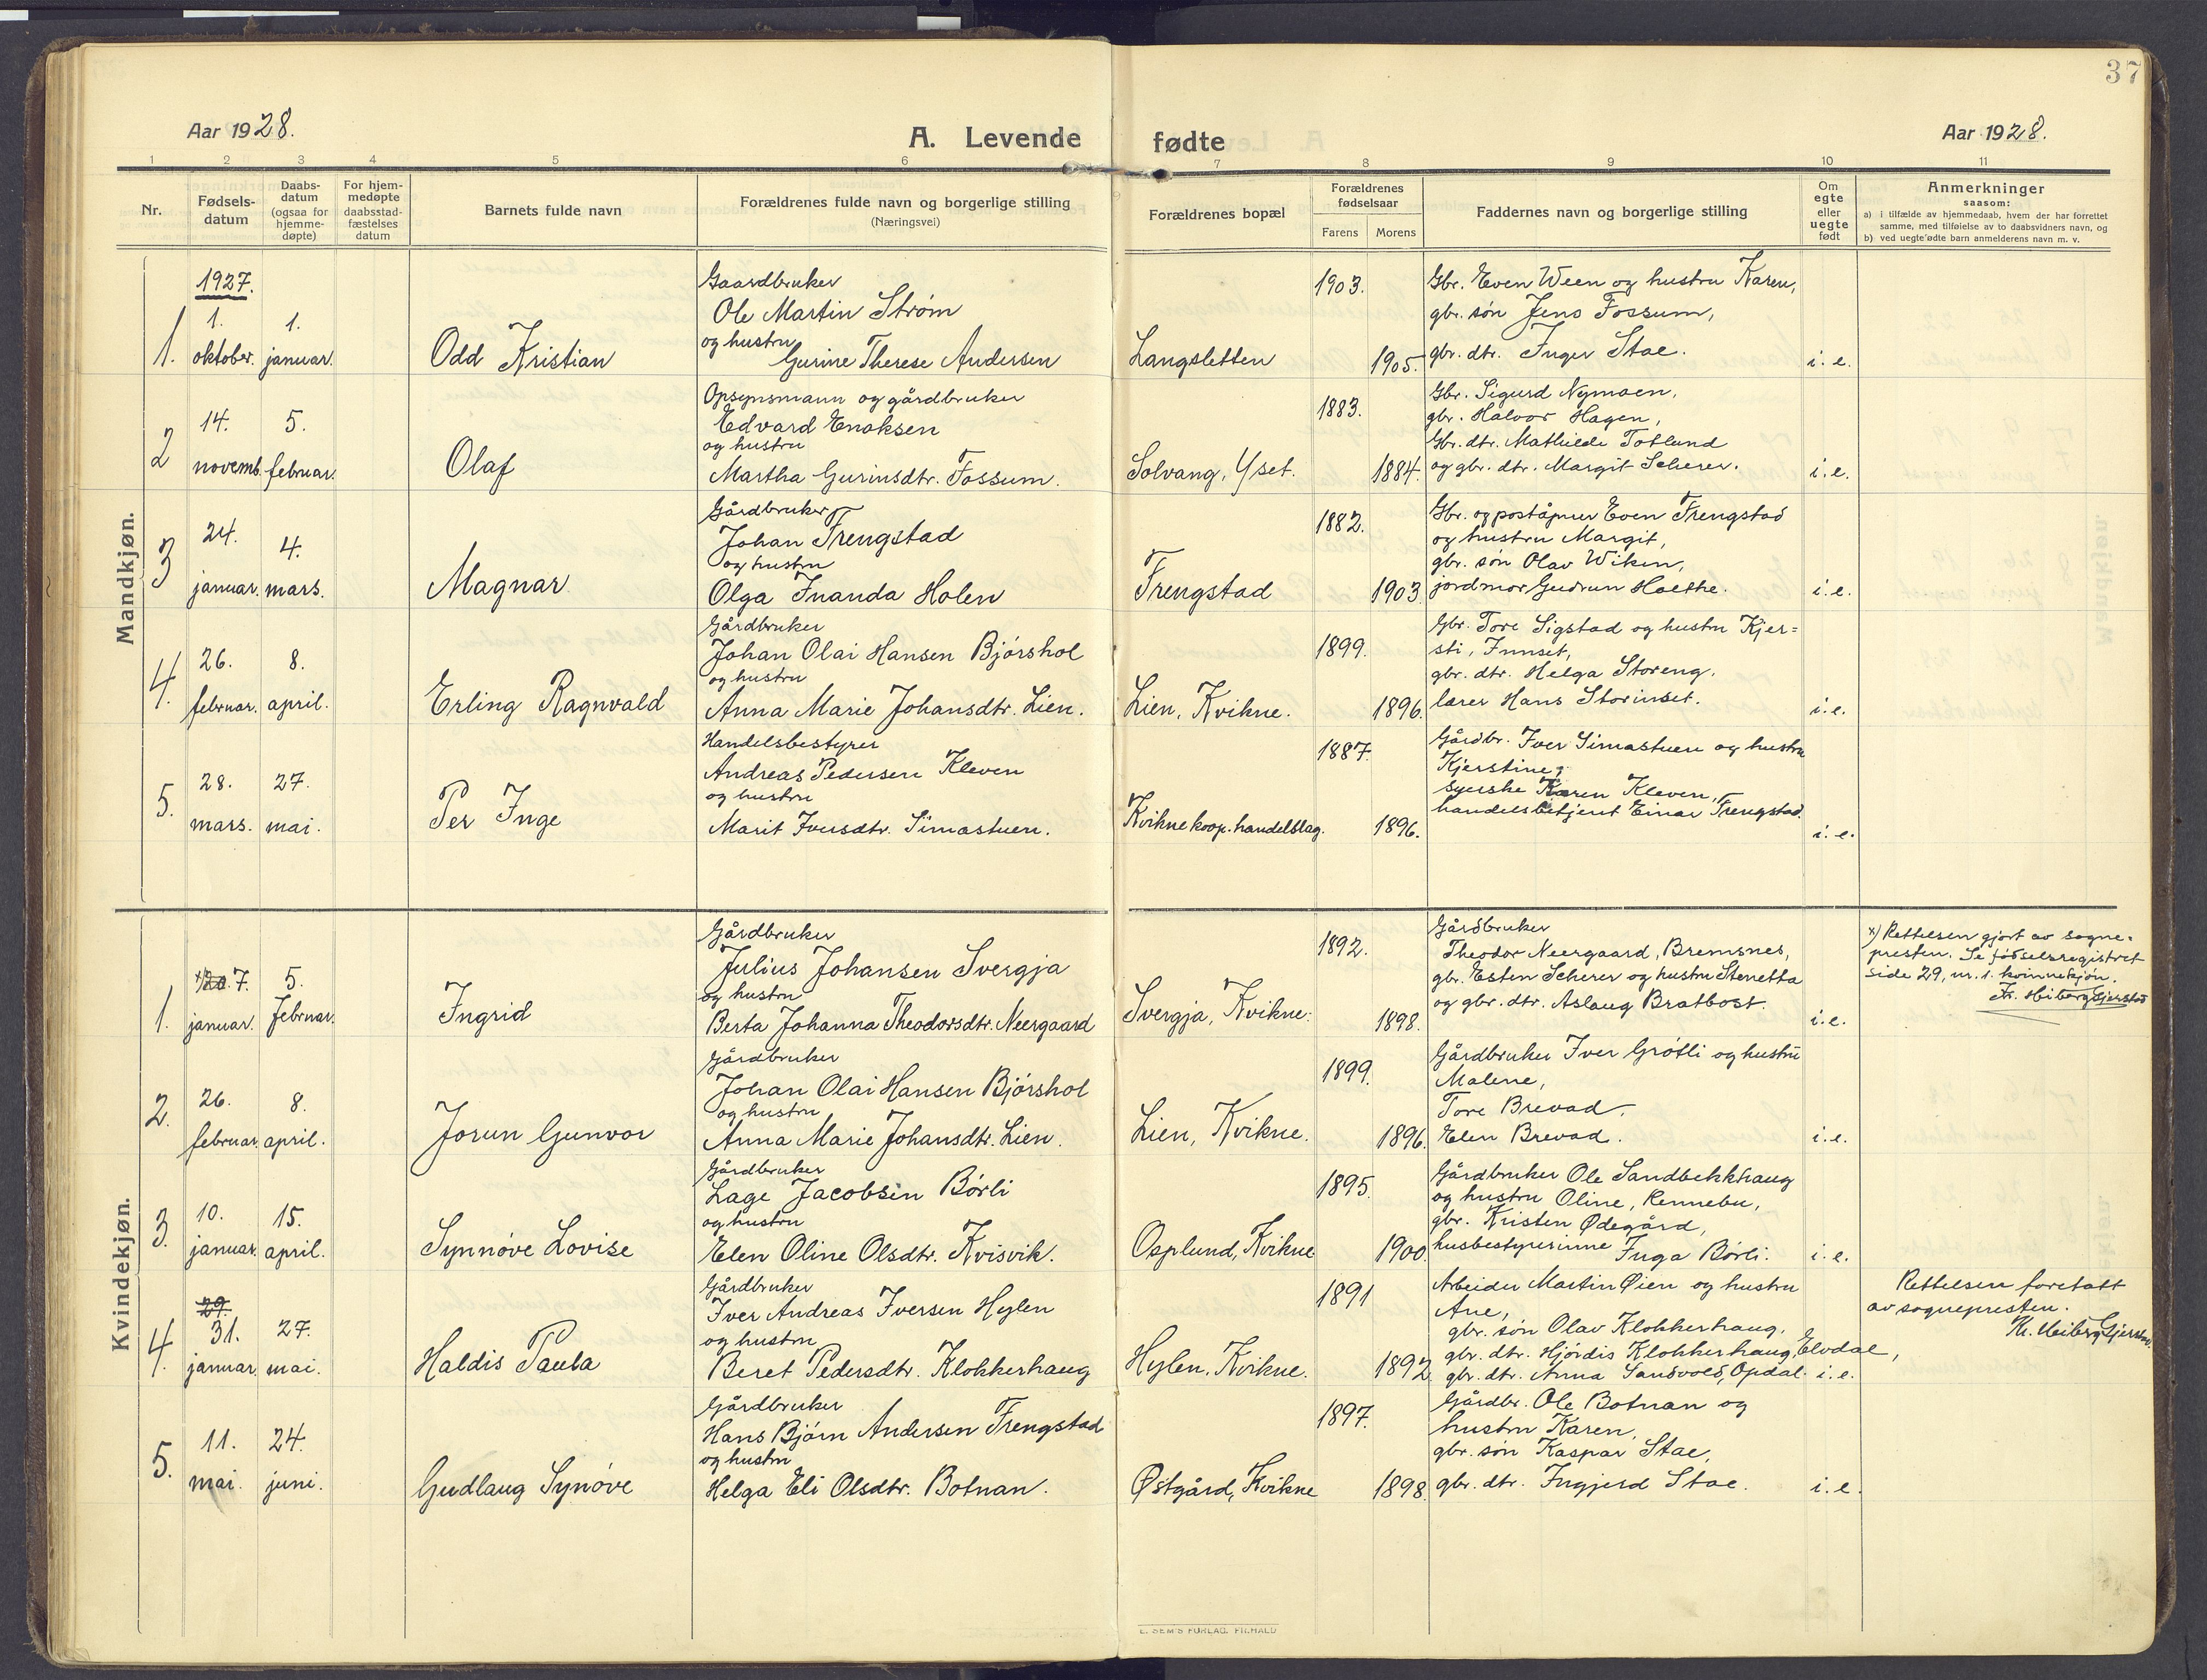 37
Aar 1928.
A. Levende fødte
Aar 1928.
1 2 3 4 5 6 7 8 9 10 11
Nr.
Fødsels-
datum
Daabs-
datum
(ogsaa for
hjemme-
døpte)
For hjem-
medøpte
daabsstad-
fæstelses
datum
Barnets fulde navn
Forældrenes fulde navn og borgerlige stilling
(Næringsvei)
Forældrenes bopæl
Forældrenes
fødselsaar
Farens Morens
Faddernes navn og borgerlige stilling
Om
egte
eller
uegte
født
Anmerkninger
saasom:
a) i tilfælde av hjemmedaab, hvem der har forrettet
samme, med tilføielse av to daabsvidners navn, og
b) ved uegte fødte barn anmelderens navn m. v.
Mandkjøn.
1927.
1.
1.
oktober.
1.
januar.
Odd Kristian
Gaardbruker
Ole Martin Strøm
og hustru
Gurine Therese Andersen
Langsletten
1903.
1905.
Gbr. Even Ween og hustru Karen,
gbr. søn Jens Fossum,
gbr. dtr. Inger Stae.
i. e.
2
14.
novemb.
5.
februar.
Olaf
Opsynsmann og gårdbruker
Edvard Enoksen
og hustru
Martha Gurinsdtr. Fossum.
Solvang, Yset.
1883.
1884.
Gbr. Sigurd Nymoen,
gbr. Halvor Hagen,
Gbr. dtr. Mathilde Totlund
og gbr. dtr. Margit Scherer.
i. e.
3
24.
januar.
4.
mars.
Magnar
Gårdbruker
Johan Frengstad
og hustru
Olga Inanda Holen
Frengstad
1882.
1903
Gbr. og poståpner Even Frengstad
og hustru Margit,
gbr. søn Olav Wiken,
jordmor Gudrun Hoelthe.
i. e.
4.
26.
februar.
8.
april.
Erling Ragnvald
Gårdbruker
Johan Olai Hansen Bjørshol
og hustru
Anna Marie Johansdtr. Lien.
Lien, Kvikne.
1899.
1896.
Gbr. Tore Sigstad og hustru Kjer=
sti, Innset,
gbr. dtr. Helga Storeng,
lærer Hans Storinset.
i. e.
5.
28.
mars.
27.
mai.
Per Inge
Handelsbestyrer
Andreas Pedersen Kleven
og hustru
Marit Iversdtr. Simastuen.
Kvikne koop. handelslag.
1887.
1896.
Gårdbr. Iver Simastuen og hustru
Kjerstine,
syerske Karen Kleven,
handelsbetjent Einar Frengstad.
i. e.
Kvindekjøn.
1.
x) 20 7.
januar.
5.
februar.
Ingrid
Gårdbruker
Julius Johansen Svergja
og hustru
Berta Johanna Theodorsdtr. Neergaard
Svergja, Kvikne.
1892.
1898.
Gårdbruker
Theodor Neergaard, Bremsnes,
gbr. Esten Scherer og hustru Stenetta
og gbr. dtr. Aslaug Bratbost.
i. e.
x) Rettelsen gjort av sogne=
presten. Se fødselsregistret
side 29, nr. 1. kvinnekjøn.
Kr. Heiberg Gjerstad
2.
26.
februar.
8.
april.
Jorun Gunvor
Gårdbruker
Johan Olai Hansen Bjørshol
og hustru
Anna Marie Johansdtr. Lien.
Lien, Kvikne.
1899.
1896.
Gårdbruker Iver Grøtli og hustru
Malene,
Tore Brevad.
Elen Brevad.
i. e.
3.
10.
januar.
15.
april.
Synnøve Lovise
Gårdbruker
Lage Jacobsen Børli
og hustru
Elen Oline Olsdtr. Kvisvik.
Osplund, Kvikne
1895.
1900
Gårdbruker Ole Sandbekkhaug
og hustru Oline, Rennebu,
gbr. Kristen Ødegård,
husbestyrerinne Inga Børli.
i. e.
4.
29.
31.
januar
27.
mai.
Haldis Paula
Gårdbruker
Iver Andreas Iversen Hylen
og hustru
Beret Pedersdtr. Klokkerhaug
Hylen, Kvikne.
1891
1892
Arbeider Martin Øien og hustru
Ane,
gbr. søn Olav Klokkerhaug,
gbr. dtr. Hjørdis Klokkerhaug, Elvdal,
gbr. dtr. Anna Sandvold, Opdal.
i. e.
Rettelsen foretatt
av sognepresten.
Kr. Heiberg Gjerstad
5.
11.
mai.
24.
juni.
Gudlaug Synøve
Gårdbruker
Hans Bjørn Andersen Frengstad
og hustru
Helga Eli Olsdtr. Botnan.
Østgård, Kvikne
1897.
1898.
Gårdbr. Ole Botnan og
hustru Karen,
gbr. søn Kaspar Stae,
gbr. dtr. Ingjerd Stae.
i. e.
E. SEM'S FORLAG. FR.HALD